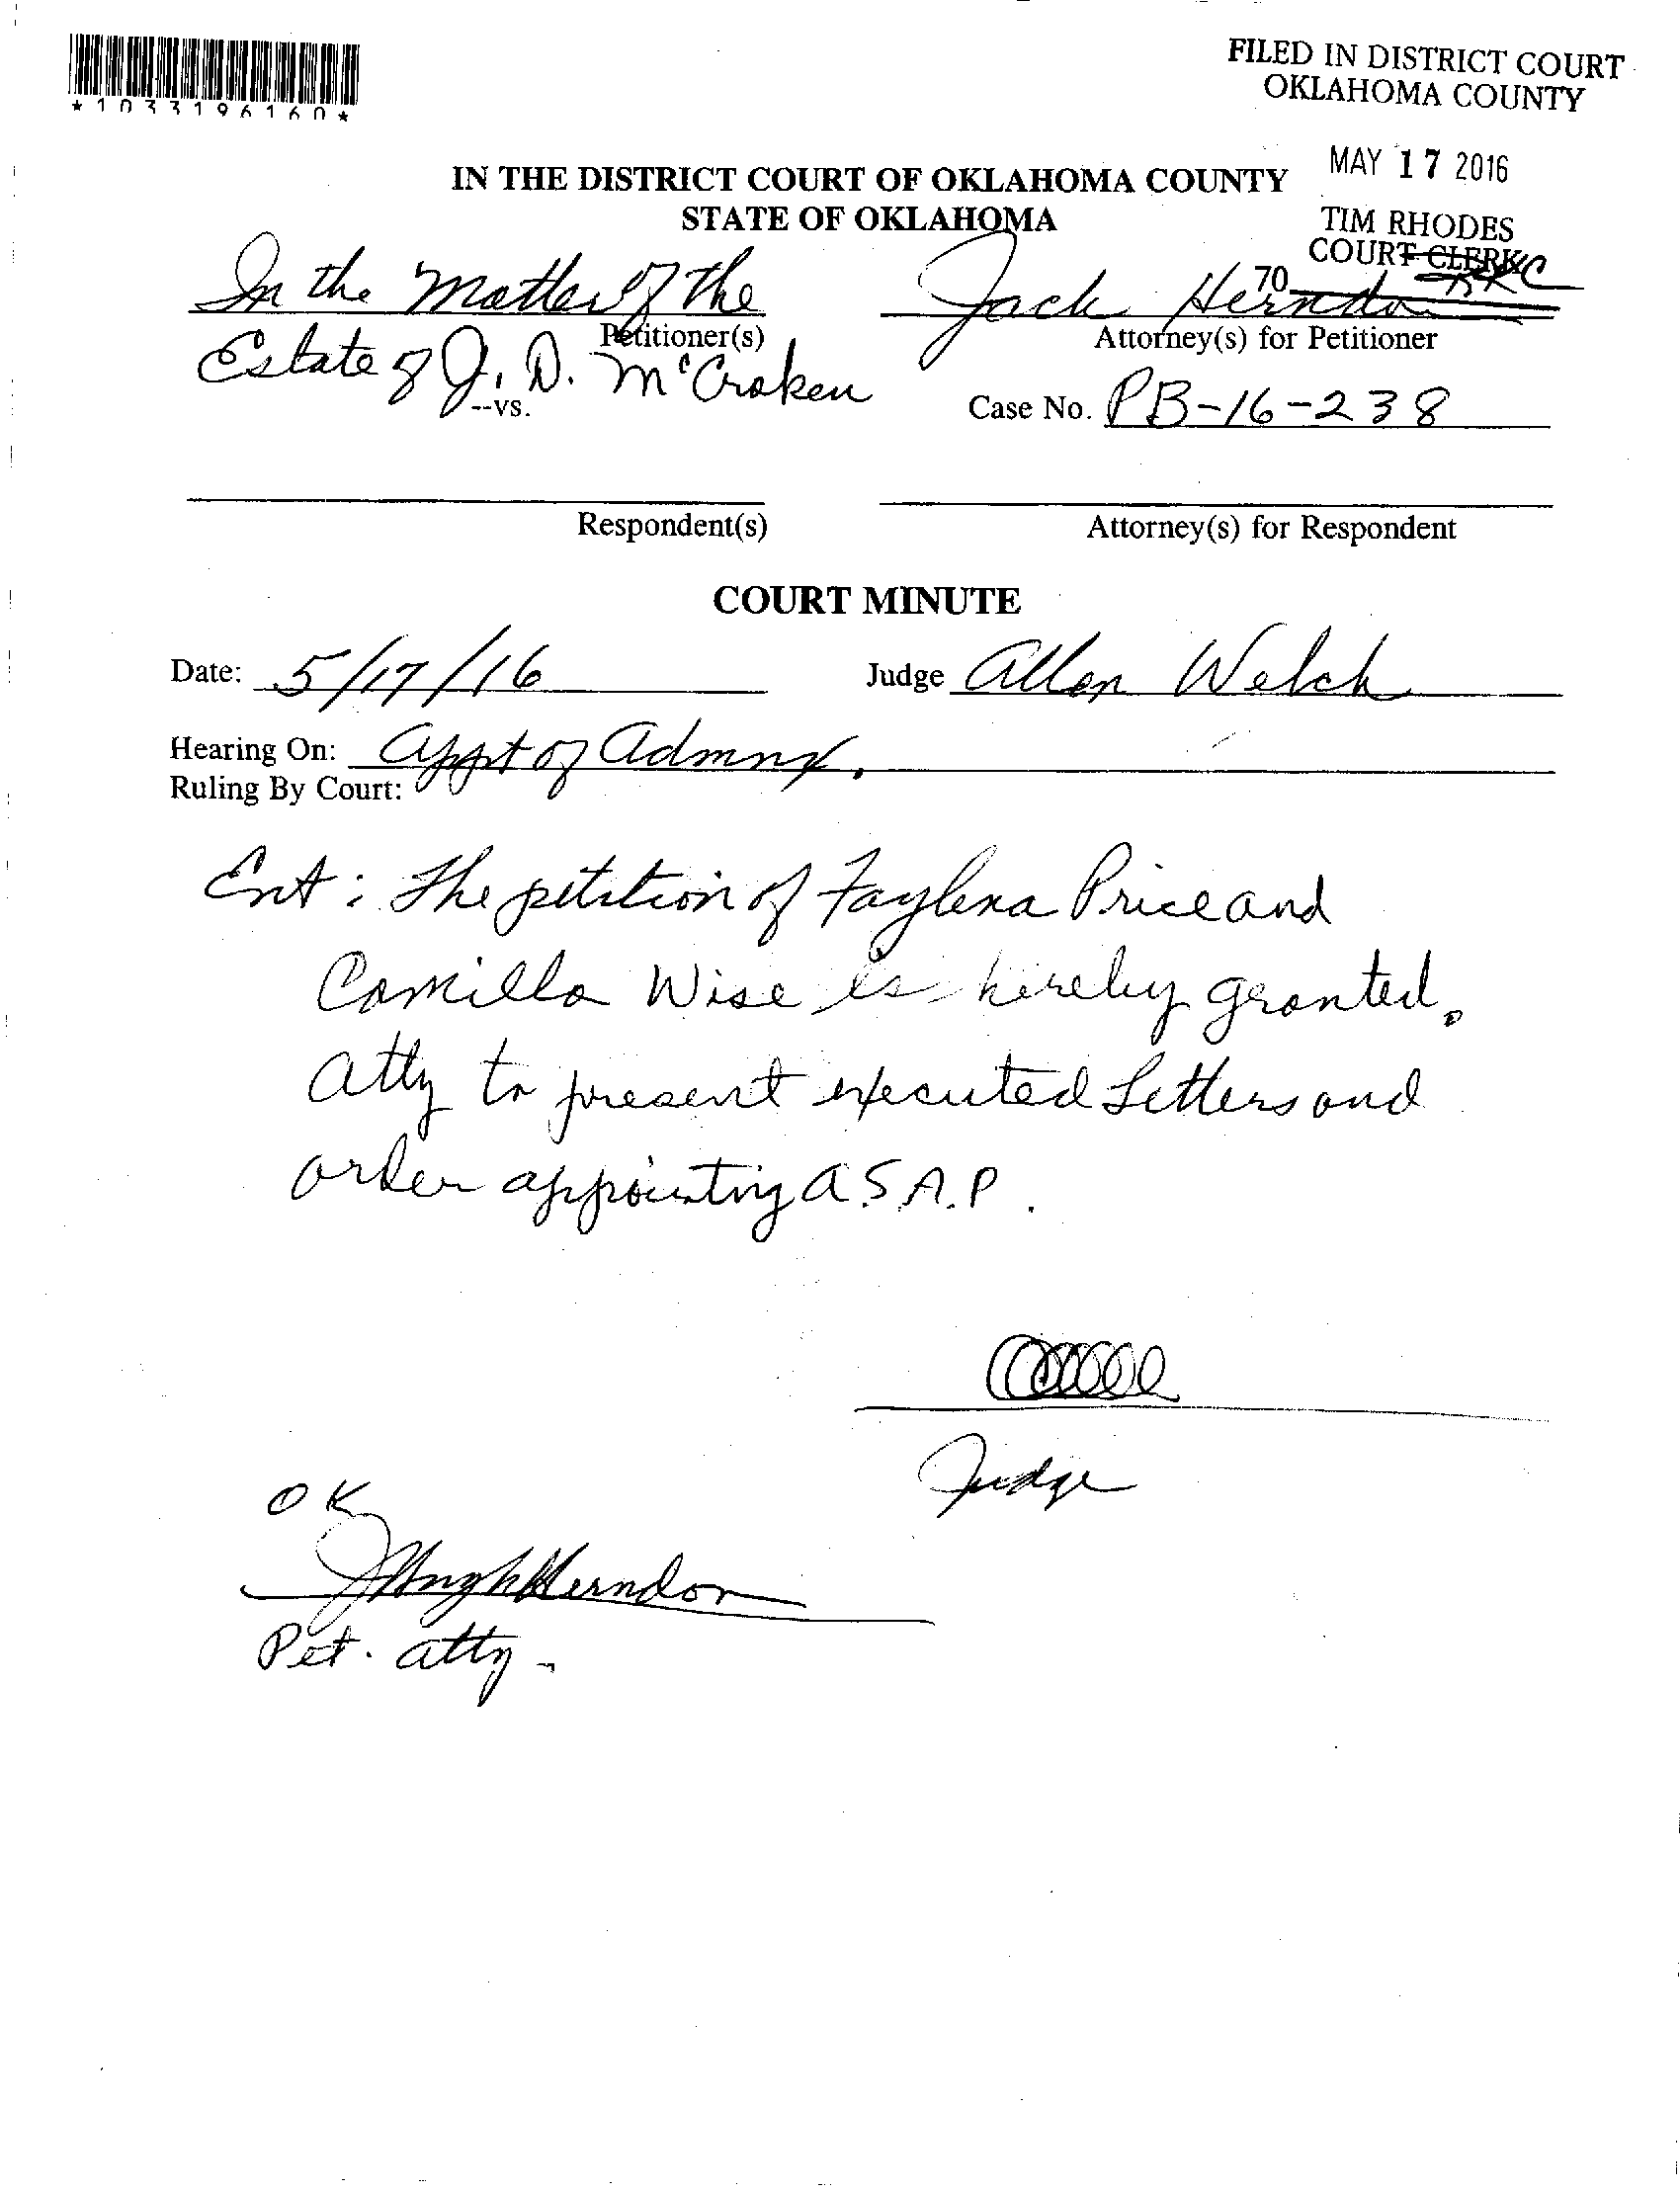 *1033196160*
FILED IN DISTRICT COURT
OKLAHOMA COUNTY
MAY 17 2016
TIM RHODES
COURT CLERK
70
IN THE DISTRICT COURT OF OKLAHOMA COUNTY
STATE OF OKLAHOMA
In the Matter of the
Petitioner(s)
Estate of J. D. McCraken
--vs.
Jack Herndon
Attorney(s) for Petitioner
Case No. PB-16-238
Respondent(s)
Attorney(s) for Respondent
COURT MINUTE
Date: 5/17/16
Judge Allen Welch
Hearing On: Appt of Admnx.
Ruling By Court:
Ent: The petition of Faylena Price and
Camilla Wise is hereby granted.
Atty to present executed Letters and
order appointing A.S.A.P.
Judge
OK
J Hugh Herndon
Pet. Atty.